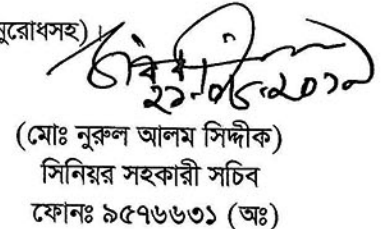 নুরোধসহ)।
(মোঃ নুরুল আলম সিদ্দীক)
সিনিয়র সহকারী সচিব
ফোনঃ ৯৫৭৬৬৩১ (অঃ)